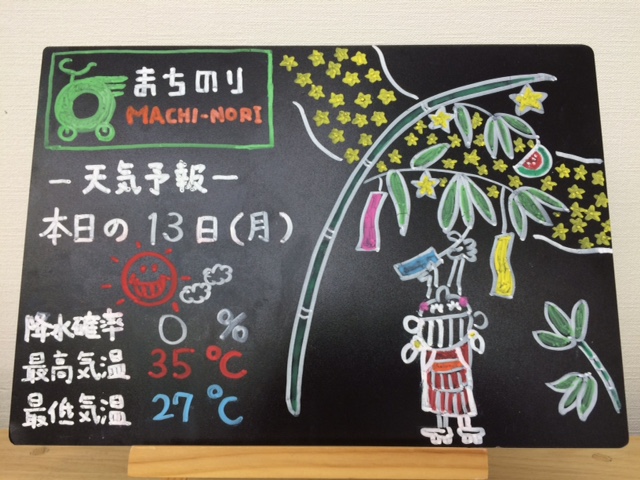 まちのり
MACHI-NORI
－天気予報－
本日の 13日(月)
降水確率 0 %
最高気温 35℃
最低気温 27℃